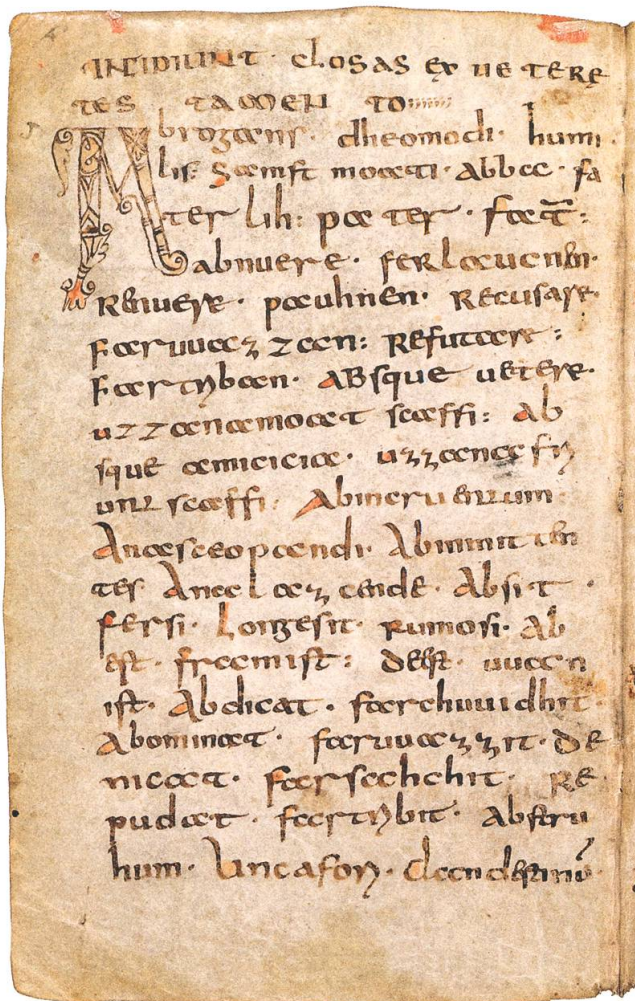 INCIPIUNT · CLOSAS EX UETERE
TES TAMEN TO
Abrogans · dheomodi · humi
lis · samftmoati · abba · fa
ter lih : pater · fat̄ :
abnuere · ferlaucnen ·
Renuere · pauhnen · Recusare ·
faruuazzan : Refutare :
fartriban · ABsque uetere ·
uzzana moat scaffi : Ab
sque amicicia · uzzana fri
untscaffi : Abincruentum
Anasceopandi · Abinnit en
tes Ana lazende · Absit ·
fersi · longesit · rumosi · Ab
est · framist : deest · uuan
ist · Abdicat · farchuuidhit
Abominat · faruuazzit · de
nicat · farsahchit · Re
pudat · fartribit · Abstru
hum · Uncafori · clandestinū